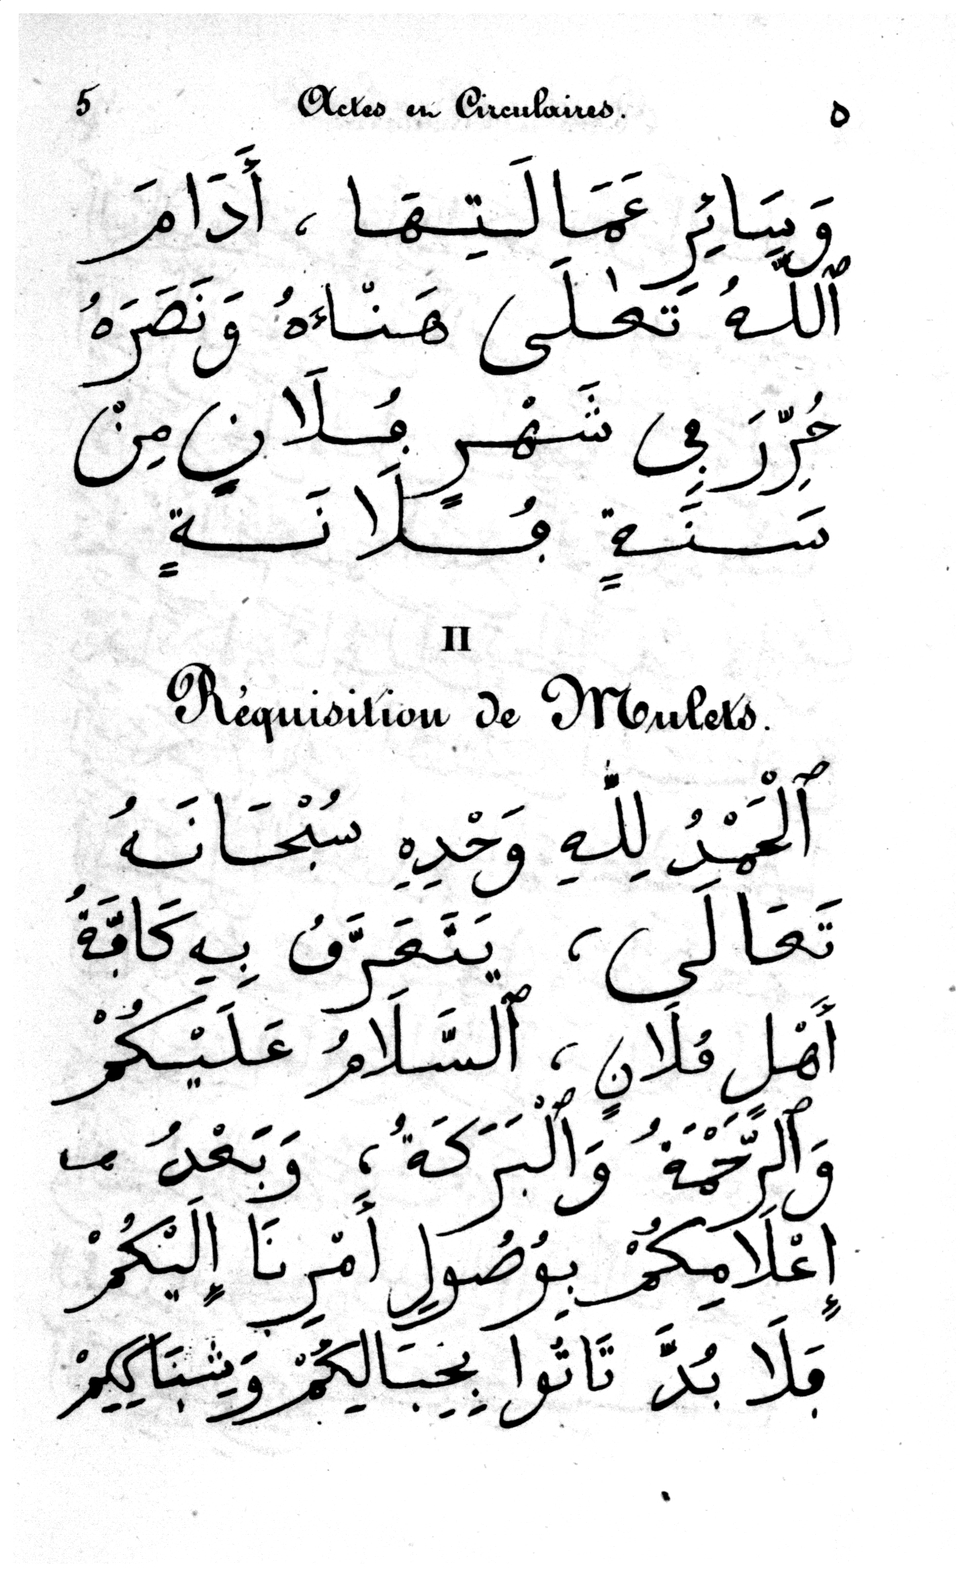 5 Actes en Circulaires. ٥
وَسَائِرِ عَمَالَتِهَا ، أَدَامَ
ٱللَّهُ تَعَٰلَى هَنَاءَهُ وَنَصَرَهُ
حُرِّرَ فِى شَهْرٍ فُلَانٍ مِنْ
سَنَةٍ فُلَانَةٍ
II
Réquisition de Mulets.
ٱلْحَمْدُ لِلَّهِ وَحْدِهِ سُبْحَانَهُ
تَعَالَى ، يَتَعَرَّفُ بِهِ كَافَّةُ
أَهْلِ فُلَانٍ ، ٱلسَّلَامُ عَلَيْكُمْ
وَٱلرَّحْمَةُ وَٱلْبَرَكَةُ ، وَبَعْدُ فـ
إِعْلَامِكُمْ بِوُصُولِ أَمْرِنَا إِلَيْكُمْ
فَلَا بُدَّ تَاتُوا بِحِبَالِكُمْ وَشِبَاكِكِمْ